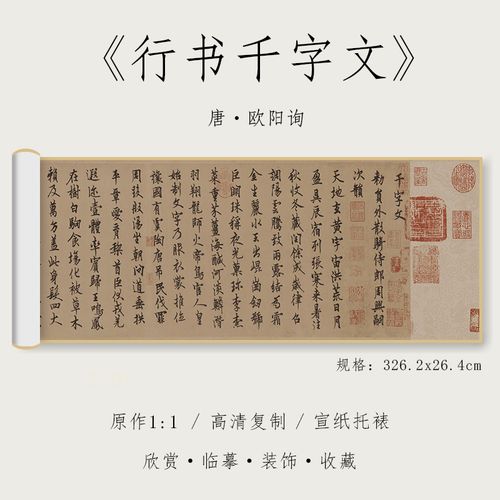 《行书千字文》
唐·欧阳询
千字文
勅員外散騎侍郎周興嗣
次韻
天地玄黃宇宙洪荒日月
盈昃辰宿列張寒來暑往
秋收冬藏閏餘成歲律召
調陽雲騰致雨露結為霜
金生麗水玉出崑崗劒號
巨闕珠稱夜光菓珎李柰
菜重芥薑海醎河淡鱗潛
羽翔龍師火帝鳥官人皇
始制文字乃服衣裳推位
讓國有虞陶唐弔民伐罪
周發殷湯坐朝問道垂拱
平章愛育黎首臣伏戎羌
遐迩壹體率賓歸王鳴鳳
在樹白駒食場化被草木
賴及萬方蓋此身髮四大
规格：326.2x26.4cm
原作1:1 / 高清复制 / 宣纸托裱
欣赏·临摹·装饰·收藏